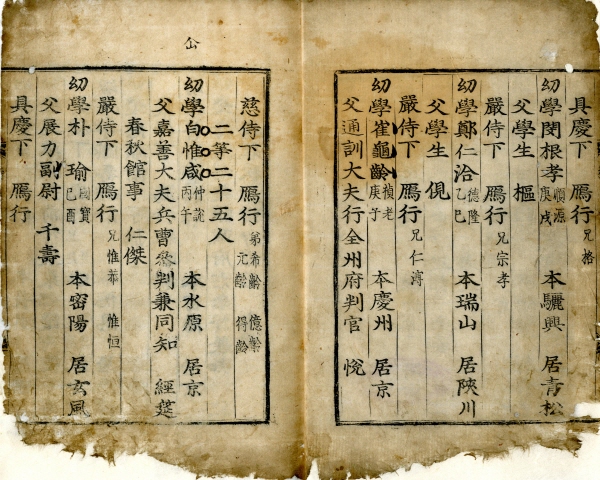 具慶下 鴈行 兄格
幼學閔根孝 順源 庚戌 本驪興 居青松
父學生 樞
嚴侍下 鴈行 兄宗孝
幼學鄭仁洽 德隆 乙巳 本瑞山 居陜川
父學生 俔
嚴侍下 鴈行 兄仁溥
幼學崔龜齡 禎老 庚子 本慶州 居京
父通訓大夫行全州府判官 悅
慈侍下 鴈行 弟希齡 億齡 元齡 得齡
二等二十五人
幼學白惟咸 仲說 丙午 本水原 居京
父嘉善大夫兵曹參判兼同知 經筵
春秋館事 仁傑
嚴侍下 鴈行 兄惟恭 惟恒
幼學朴 瑜 國寶 己酉 本密陽 居玄風
父展力副尉 千壽
具慶下 鴈行